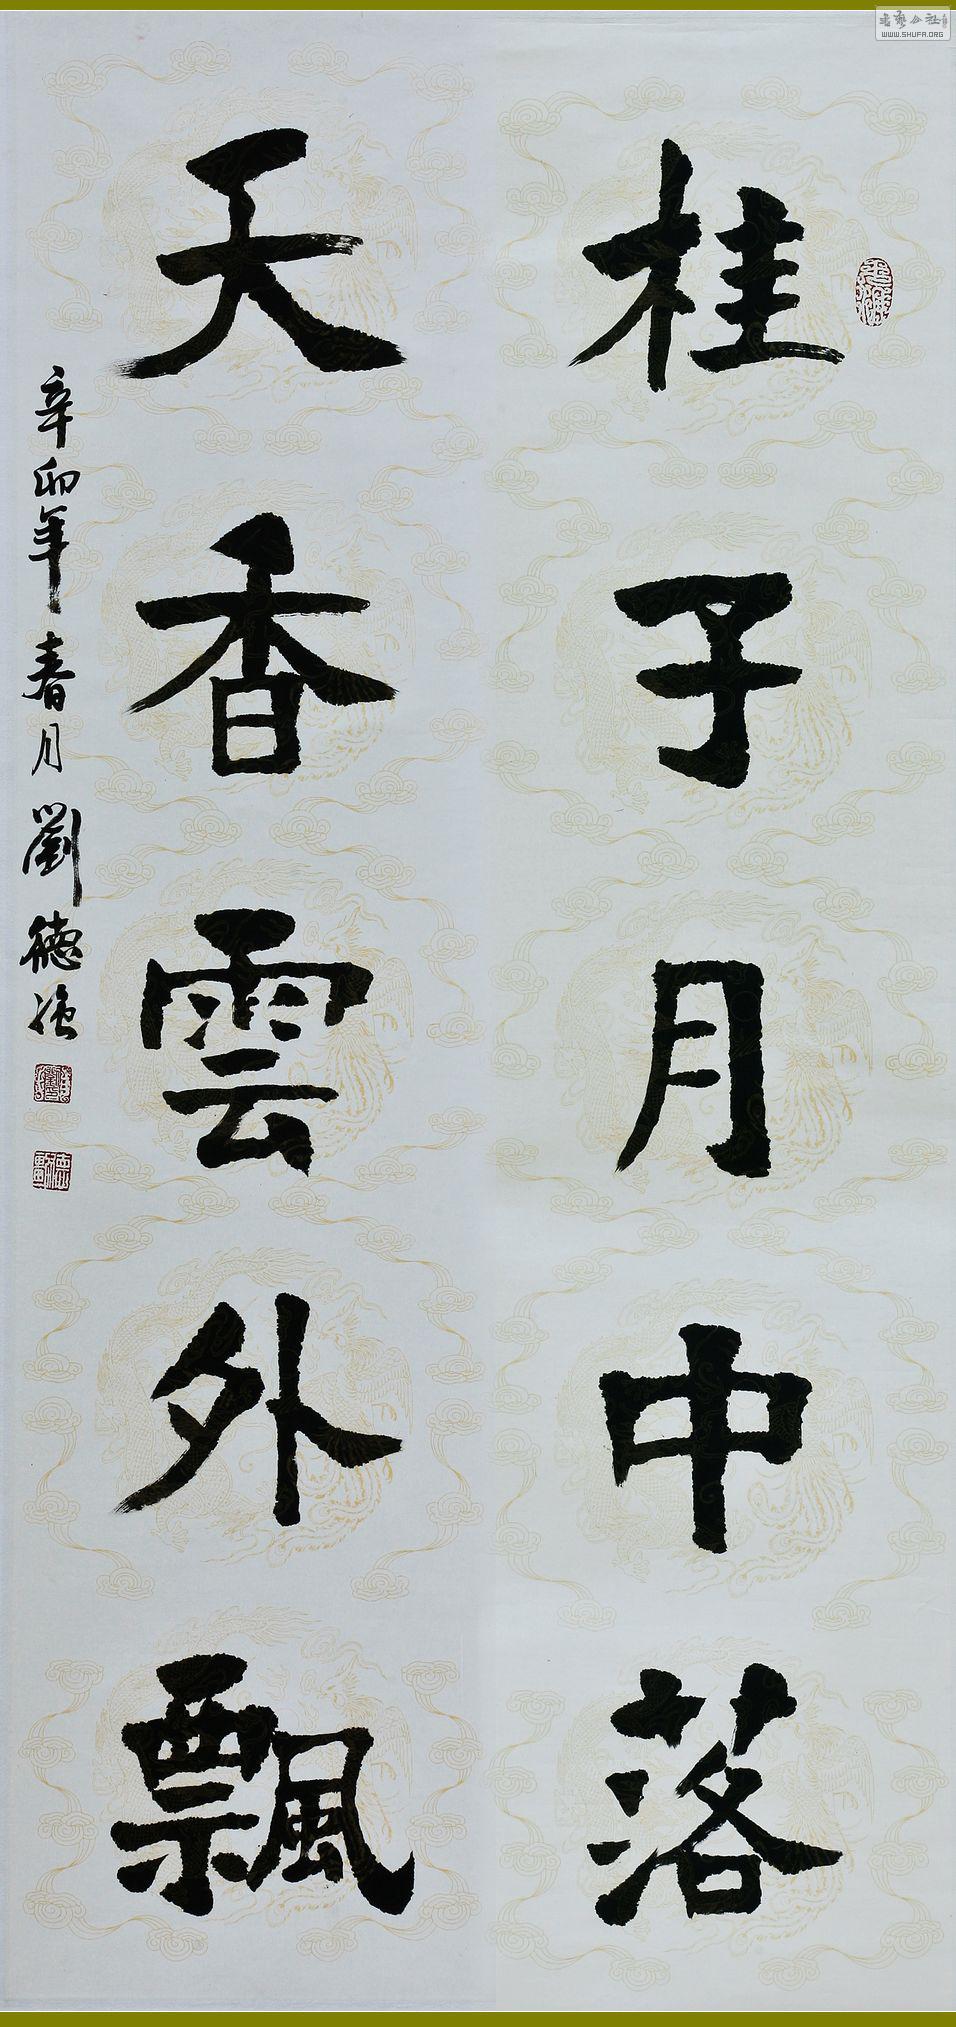 桂子月中落
天香雲外飄
辛卯年春月劉德強
書藝公社
WWW.SHUFA.ORG